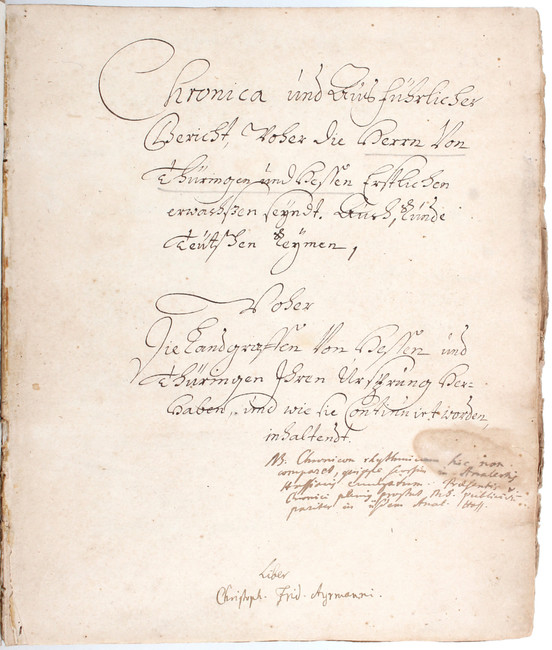 Chronica und Ausführlicher
Bericht, Woher die Herrn Von
Thüringen und Hessen Erstlichen
erwachsen seyndt. Auch,
Teütschen Reymen,
Woher
Die Landgraffen Von Hessen und
Thüringen Jhren Ursprung Her-
haben, und wie sie Continuirt worden,
inhaltendt.
NB. Chronicon rhythmicum hic non
comparet, quippe in Analectis
Hassiacis
Chronici plenius prostat, publici
pariter in Anal. Hass.
Liber
Christoph. Frid. Ayrmanni.